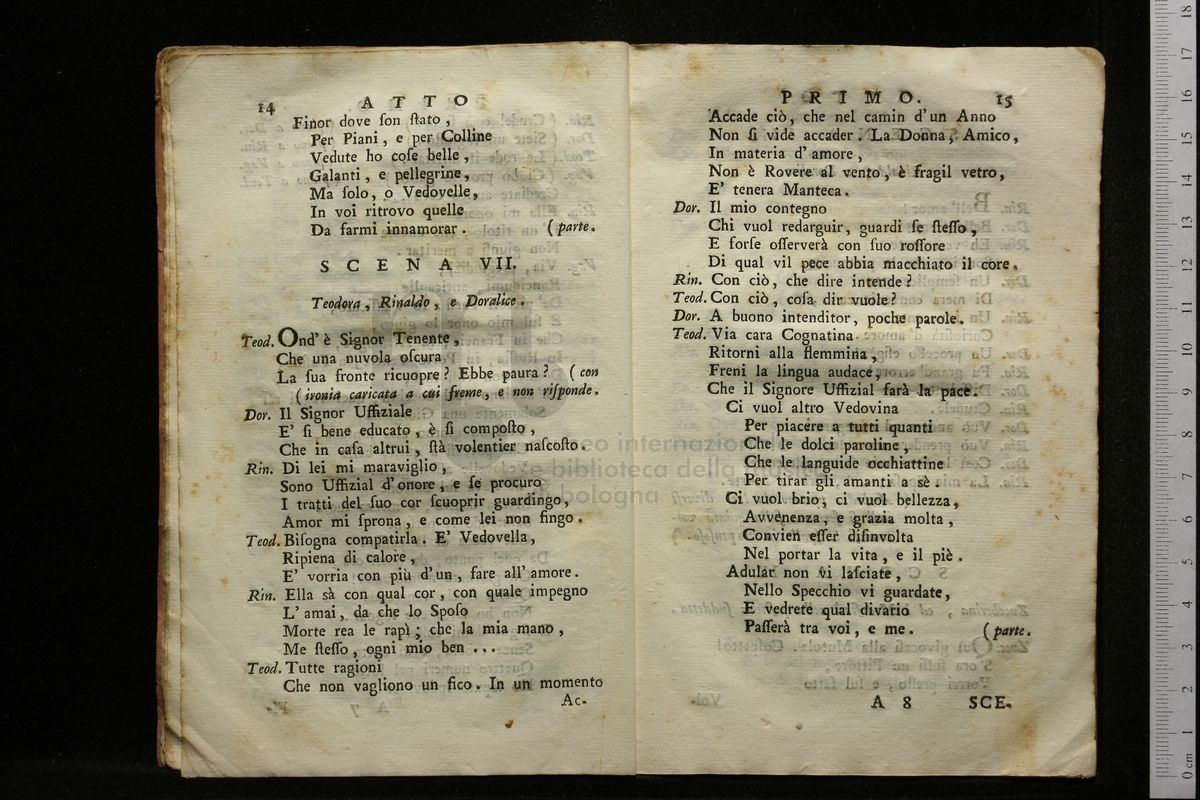 14 ATTO
Finor dove ſon ſtato,
Per Piani, e per Colline
Vedute ho coſe belle,
Galanti, e pellegrine,
Ma ſolo, o Vedovelle,
In voi ritrovo quelle
Da farmi innamorar. (parte.
SCENA VII.
Teodora, Rinaldo, e Doralice.
Teod. Ond' è Signor Tenente,
Che una nuvola oſcura
La ſua fronte ricuopre? Ebbe paura? (con
(ironia caricata a cui freme, e non riſponde.
Dor. Il Signor Uffiziale
E' ſi bene educato, è ſi compoſto,
Che in caſa altrui, ſtà volentier naſcoſto.
Rin. Di lei mi maraviglio,
Sono Uffizial d'onore, e ſe procuro
I tratti del ſuo cor ſcuoprir guardingo,
Amor mi ſprona, e come lei non fingo.
Teod. Biſogna compatirla. E' Vedovella,
Ripiena di calore,
E' vorria con più d'un, fare all' amore.
Rin. Ella sà con qual cor, con quale impegno
L' amai, da che lo Spoſo
Morte rea le rapì; che la mia mano,
Me ſteſſo, ogni mio ben ...
Teod. Tutte ragioni
Che non vagliono un fico. In un momento
Ac-
PRIMO. 15
Accade ciò, che nel camin d'un Anno
Non ſi vide accader. La Donna, Amico,
In materia d' amore,
Non è Rovere al vento, è fragil vetro,
E' tenera Manteca.
Dor. Il mio contegno
Chi vuol redarguir, guardi ſe ſteſſo,
E forſe oſſerverà con ſuo roſſore
Di qual vil pece abbia macchiato il core.
Rin. Con ciò, che dire intende?
Teod. Con ciò, coſa dir vuole?
Dor. A buono intenditor, poche parole.
Teod. Via cara Cognatina
Ritorni alla flemmina,
Freni la lingua audace,
Che il Signore Uffizial farà la pace.
Ci vuol altro Vedovina
Per piacere a tutti quanti
Che le dolci paroline,
Che le languide occhiattine
Per tirar gli amanti a sè.
Ci vuol brio, ci vuol bellezza,
Avvenenza, e grazia molta,
Convien eſſer diſinvolta
Nel portar la vita, e il piè.
Adular non vi laſciate,
Nello Specchio vi guardate,
E vedrete qual divario
Paſſerà tra voi, e me. (parte.
A 8 SCE-
museo internazionale
e biblioteca della musica
bologna
0 cm 1 2 3 4 5 6 7 8 9 10 11 12 13 14 15 16 17 18